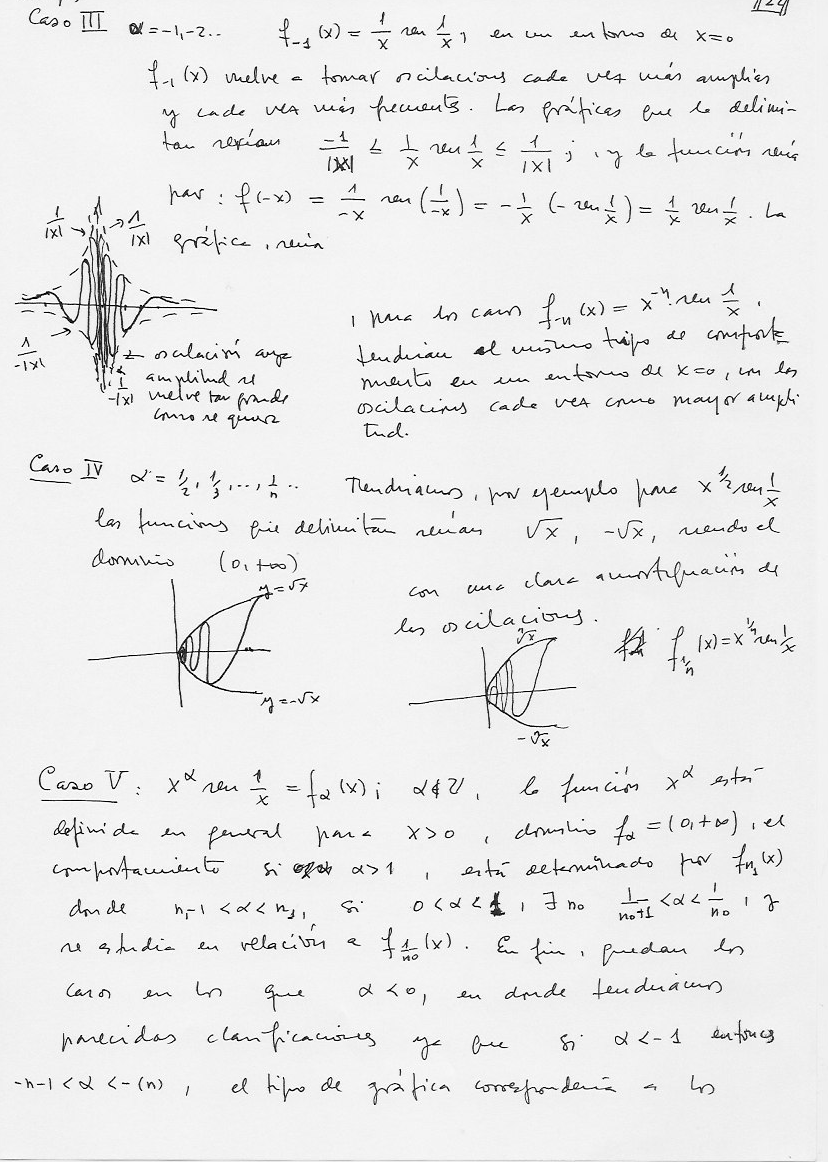 124
Caso III α = -1, -2.. f₋₁(x) = 1/x sen 1/x, en un entorno de x=0
f₋₁(x) vuelve a tomar oscilacions cada vez más amplias
y cada vez más frecuentes. Las gráficas que la delimi-
tan serían -1/|x| ≤ 1/x sen 1/x ≤ 1/|x| ; , y la función sería
par : f(-x) = 1/-x sen (1/-x) = -1/x (-sen 1/x) = 1/x sen 1/x. La
gráfica, sería
1/|x| 1/|x|
1/-|x|
1/-|x|
← oscilación cuya
amplitud se
vuelve tan grande
como se quiera
, para los casos f₋ₙ(x) = x⁻ⁿ sen 1/x,
tendrían el mismo tipo de comporta
miento en un entorno de x=0, con las
oscilacions cada vez como mayor ampli
tud.
Caso IV α = 1/2, 1/3, ..., 1/n .. Tendríamos, por ejemplo para x^1/2 sen 1/x
las funcions que delimitan serían √x, -√x, siendo el
dominio (0,+∞)
con una clara amortiguación de
las oscilacions.
y=√x
y=-√x
ⁿ√x
-ⁿ√x
f_1/n (x) = x^1/n sen 1/x
Caso V : x^α sen 1/x = f_α(x) ; α∉ℤ, la función x^α está
definida en general para x>0, dominio f_α = (0,+∞), el
comportamiento si α>1, está determinado por f_n₁(x)
donde n₁-1 < α < n₁, si 0<α<1, ∃ n₀ 1/n₀+1 < α < 1/n₀, y
se estudia en relación a f_1/n₀(x). En fin, quedan los
casos en los que α<0, en donde tendríamos
parecidas clasificaciones ya que si α<-1 entonces
-n-1 < α < -(n), el tipo de gráfica correspondería a los